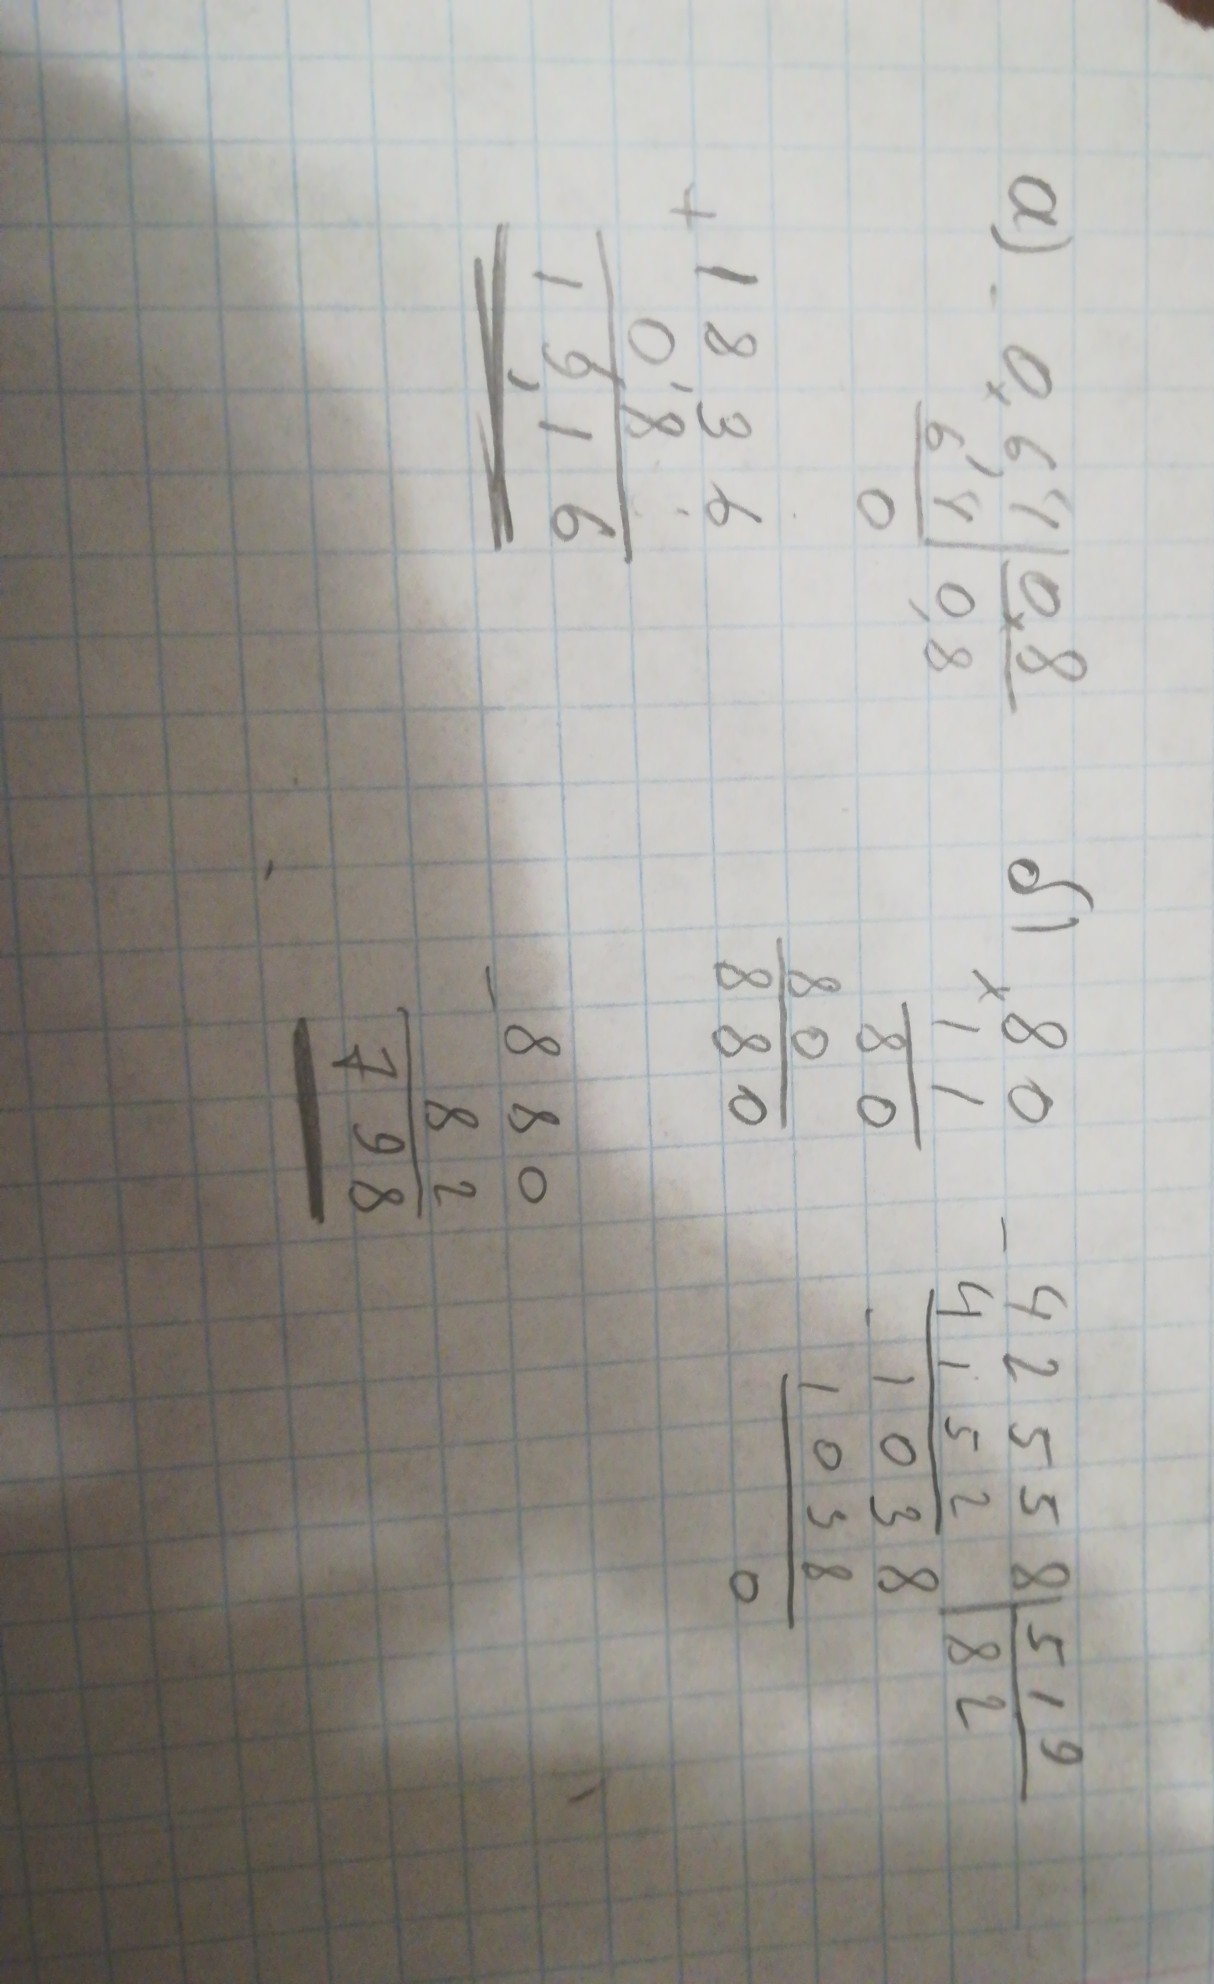 а) - 0,64 | 0,8
6,4 | 0,8
0
+ 1836
0,8
19,16
б) × 80
11
80
80
880
- 880
82
798
- 42558 | 519
4152 | 82
- 1038
1038
0